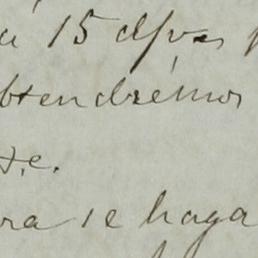 a 15 d/v
btendrémos
te.
ra se haga